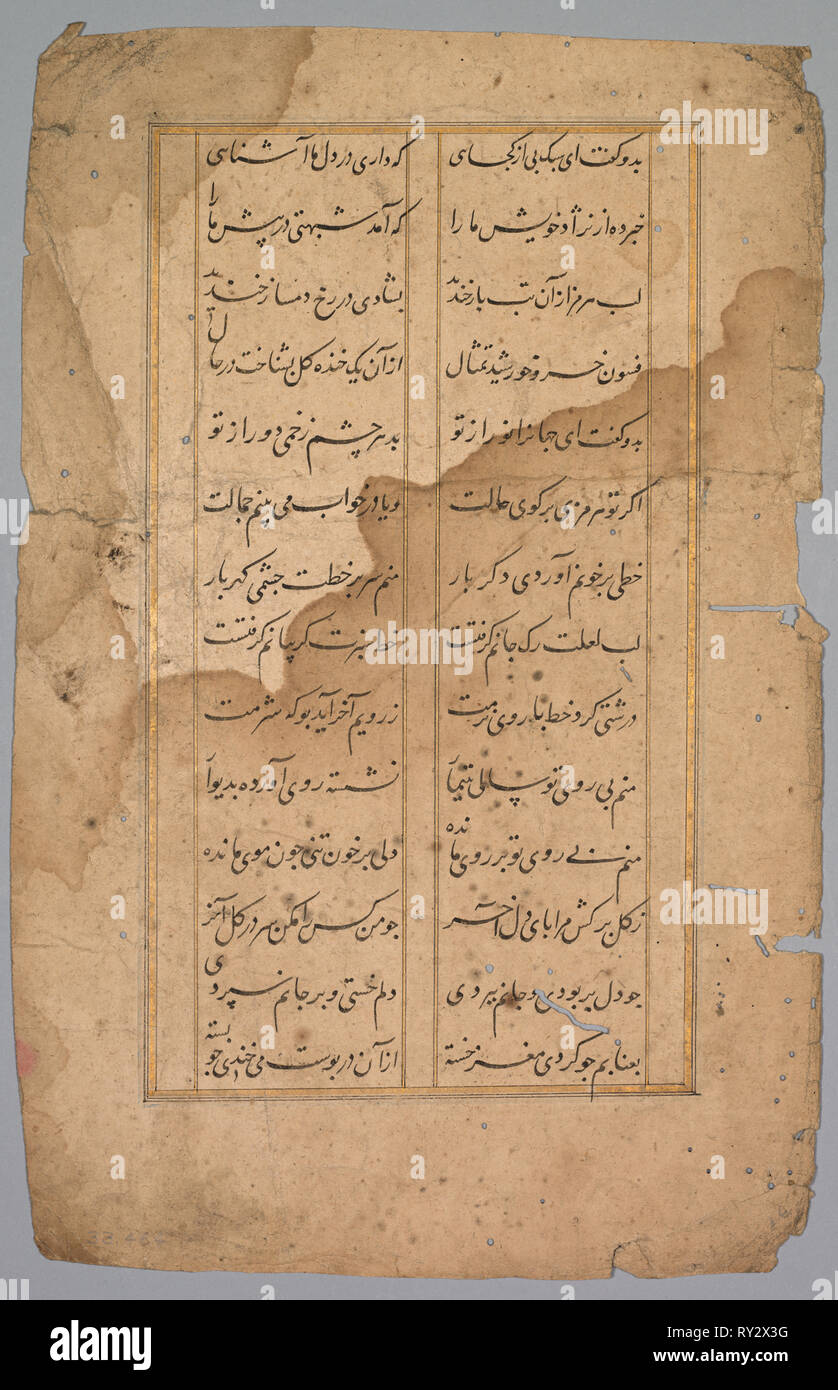 بدو گفت ای سبک پی از کجایی که داری در دل ما آشنایی
خبر ده از نژاد خویش ما را که آمد شبهتی در پیش ما را
لب هرمز از آن بت باز خندید بشادی در رخ دمساز خندید
فسون خسرو خورشید تمثال از آن یک خنده گل بشناخت در حال
بدو گفت ای جهانرا نور از تو بد هر چشم زخمی دور از تو
اکر تو هرمزی بر کوی حالت و یا در خواب می بینم جمالت
خطی بر خونم آوردی دکر بار منم سر بر خطت چشمی کهربار
لب لعلت رک جانم کرفتست خط سبزت کریبانم کرفتست
درشتی کرد خط با روی نرمت ز رویم آخر آید بو که شرمت
منم بی روی تو نشسته روی آورده بدیوار
منم بی روی تو بر روی مانده دلی پر خون تنی جون موی مانده
ز کل برکش مرا پای دل آخر جو من کس را مکن سر در کل آخر
جو دل بربودی و جانم ببردی دلم خستی و بر جانم سپردی
بعنابم جو کردی مغز خسته از آن در پوست می خندی جو بسته
alamy
Image ID: RY2X3G
www.alamy.com